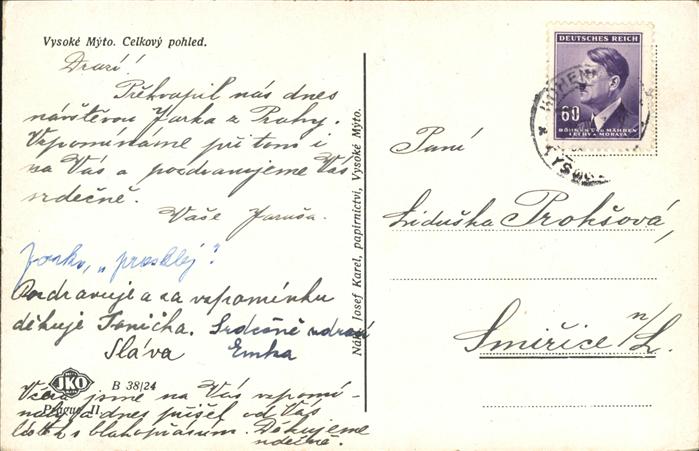 Vysoké Mýto. Celkový pohled.
Drazí!
Překvapil nás dnes
návštěvou Jarka z Prahy.
Vzpomínáme při tom i
na Vás a pozdravujeme Vás
srdečně.
Vaše Jaruša.
Jarko,
Pozdravuje a za vzpomínku
děkuje Tonička. Srdečně zdraví
Sláva Emka
JKO
B 38/24
Prague II
Včera jsme na Vás vzpomí-
naly a dnes přišel od Vás
lístek s blahopřáním. Děkujeme
srdečně.
Nákl. Josef Karel, papírnictví, Vysoké Mýto.
DEUTSCHES REICH
60
BÖHMEN UND MÄHREN
ČECHY A MORAVA
HOHENM
VYSOK
Paní
Liduška Prokšová,
Smiřice n/L.